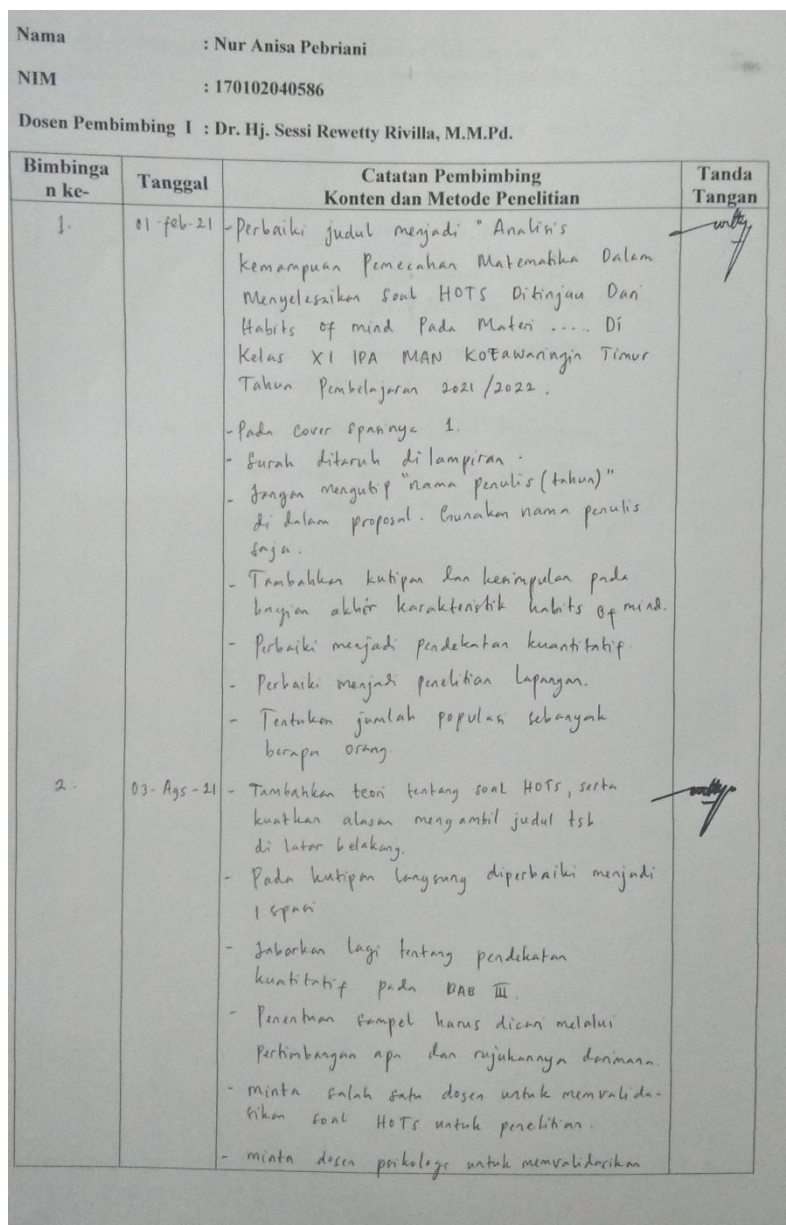 Nama : Nur Anisa Pebriani
NIM : 170102040586
Dosen Pembimbing I : Dr. Hj. Sessi Rewetty Rivilla, M.M.Pd.
Bimbinga
n ke-
Tanggal
Catatan Pembimbing
Konten dan Metode Penelitian
Tanda
Tangan
1. 01-feb-21 - Perbaiki judul menjadi " Analisis
Kemampuan Pemecahan Matematika Dalam
Menyelesaikan Soal HOTS Ditinjau Dari
Habits of mind Pada Materi ..... Di
Kelas XI IPA MAN Kotawaringin Timur
Tahun Pembelajaran 2021/2022.
- Pada cover spasinya 1.
- Surah ditaruh di lampiran.
- Jangan mengutip "nama penulis (tahun)"
di dalam proposal. Gunakan nama penulis
saja.
- Tambahkan kutipan dan kesimpulan pada
bagian akhir karakteristik habits of mind.
- Perbaiki menjadi pendekatan kuantitatif.
- Perbaiki menjadi penelitian Lapangan.
- Tentukan jumlah populasi sebanyak
berapa orang.
2. 03-Ags-21 - Tambahkan teori tentang soal HOTS, serta
kuatkan alasan mengambil judul tsb
di latar belakang.
- Pada kutipan langsung diperbaiki menjadi
1 spasi
- Jabarkan lagi tentang pendekatan
kuantitatif pada BAB III.
- Penentuan sampel harus dicari melalui
Pertimbangan apa dan rujukannya darimana.
- minta salah satu dosen untuk memvalida-
sikan soal HOTS untuk penelitian.
- minta dosen psikologi untuk memvalidasikan